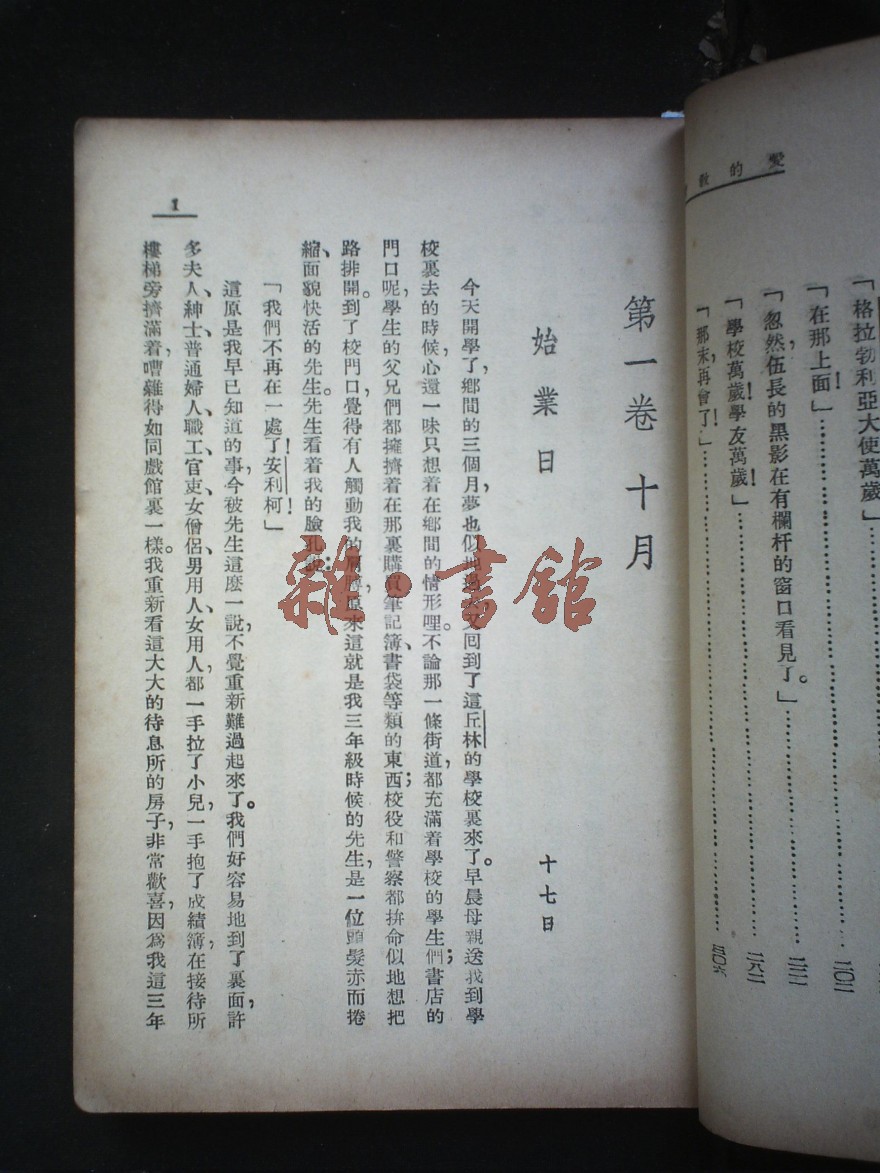 愛的教
「格拉勃利亞大使萬歲！」
「在那上面！」……二〇二
「忽然，伍長的黑影在有欄杆的窗口看見了。」……二三二
「學校萬歲！學友萬歲！」……二八二
「那末，再會了！」……三〇六
1
第一卷 十月
始業日 十七日
今天開學了，鄉間的三個月，夢也似地過去，又回到了這丘林的學校裏來了。早晨母親送我到學
校裏去的時候，心還一味只想着在鄉間的情形哩。不論那一條街道，都充滿着學校的學生們；書店的
門口呢，學生的父兄們都擁擠着在那裏購買筆記簿、書袋等類的東西；校役和警察都拚命似地想把
路排開。到了校門口，覺得有人觸動我的肩膊，原來這就是我三年級時候的先生，是一位頭髮赤而捲
縮、面貌快活的先生。先生看着我的臉孔說：
「我們不再在一處了！安利柯！」
這原是我早已知道的事，今被先生這麽一說，不覺重新難過起來了。我們好容易地到了裏面，許
多夫人、紳士、普通婦人、職工、官吏、女僧侶、男用人、女用人，都一手拉了小兒，一手抱了成績簿，在接待所
樓梯旁擠滿着，嘈雜得如同戲館裏一樣。我重新看這大大的待息所的房子，非常歡喜，因爲我這三年
雜·書館